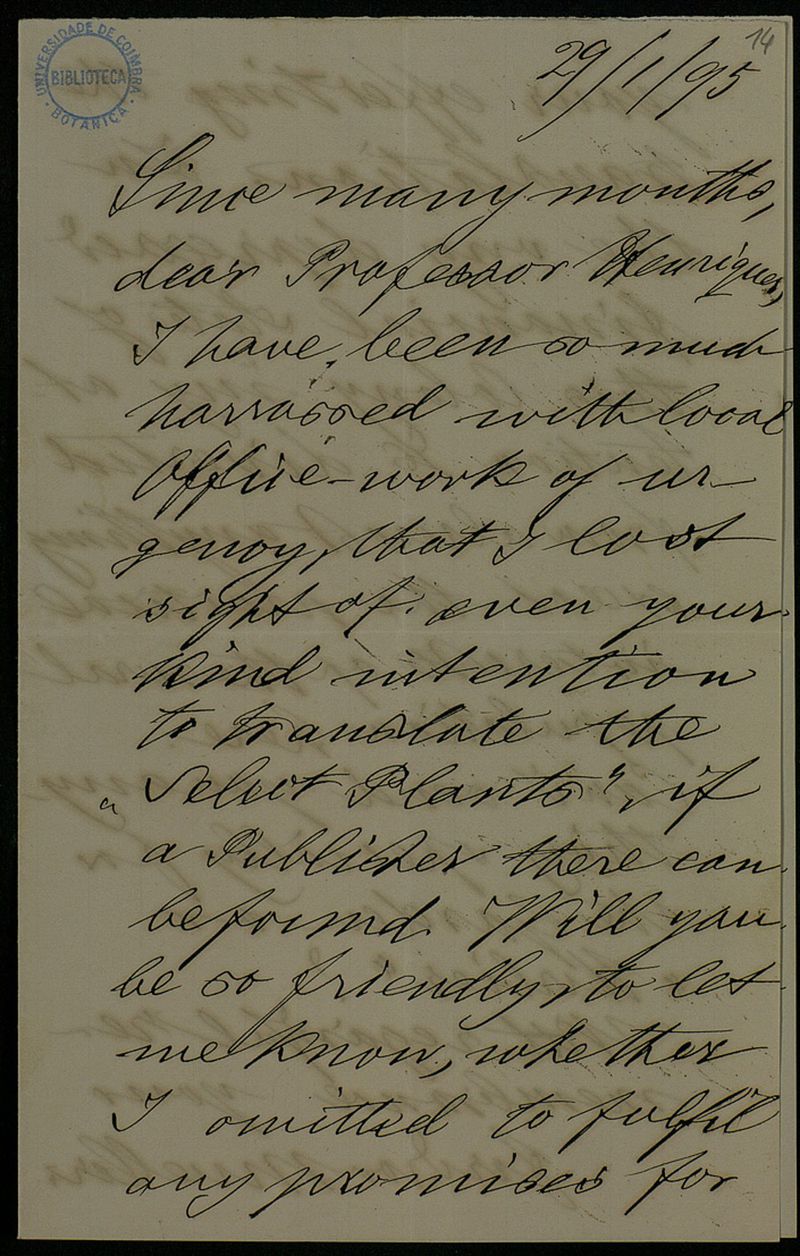 UNIVERSIDADE DE COIMBRA
BIBLIOTECA
BOTANICA
14
29/1/95
Since many months,
dear Professor Henriques,
I have, been so much
harrassed with local
Office-work of ur-
gency, that I lost
sight of even your
kind intention
to translate the
„Select Plants", if
a Publisher there can
be found. Will you
be so friendly, to let
me know, whether
I omitted to fulfil
any promises for